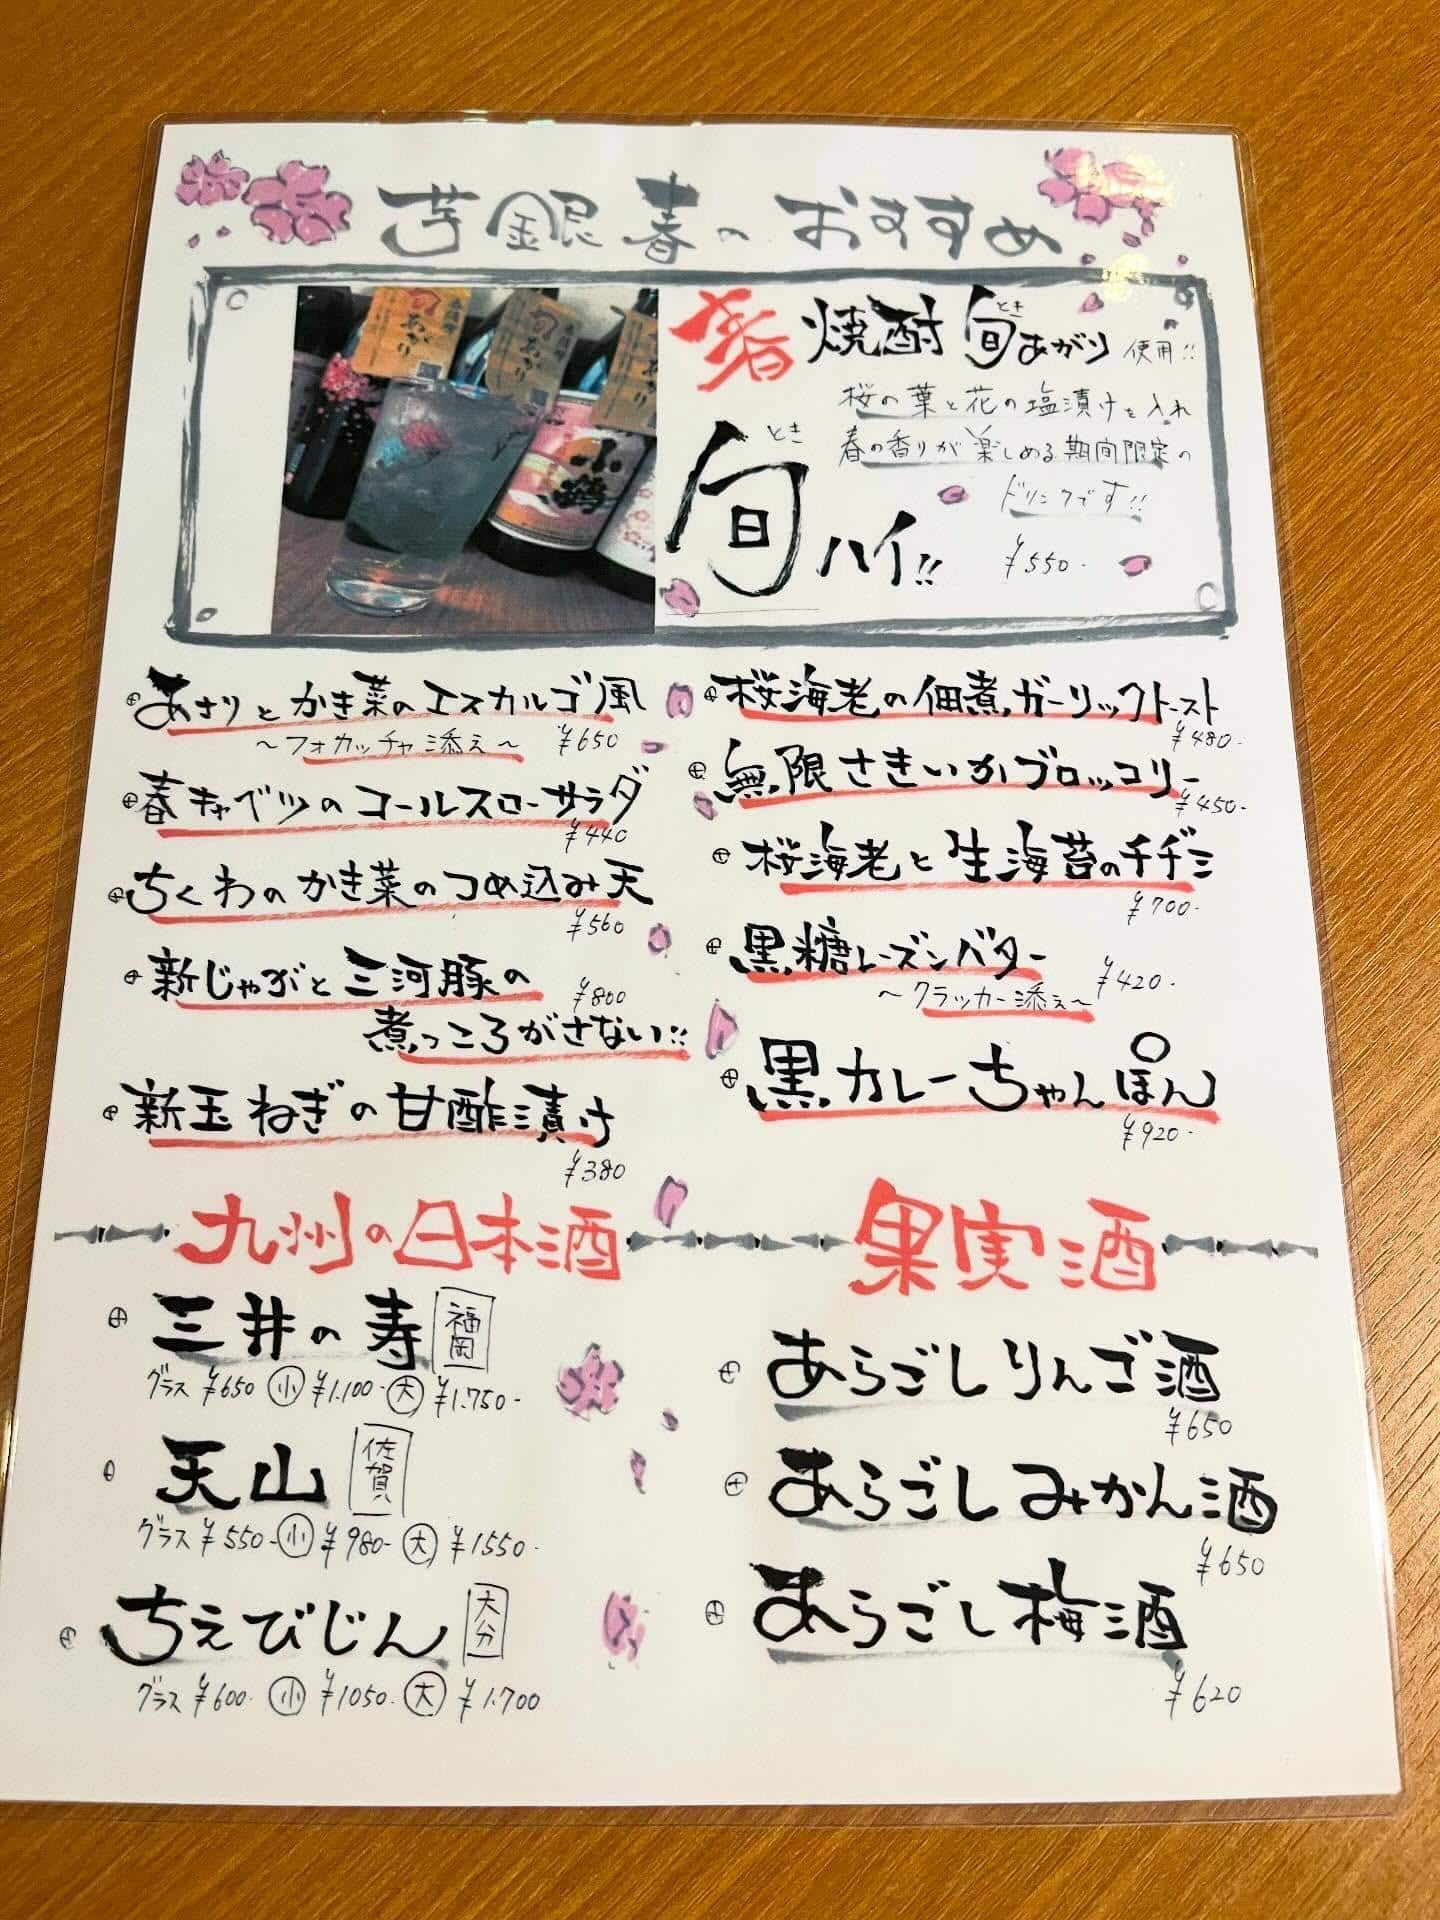 芋銀 春のおすすめ
春 焼酎 旬あがり 使用!!
とき
桜の葉と花の塩漬けを入れ
春の香りが楽しめる期間限定の
ドリンクです!!
とき
旬ハイ!!
¥550-
旬あがり
小鶴
あさりとかき菜のエスカルゴ風
~フォカッチャ添え~ ¥650
春キャベツのコールスローサラダ
¥440
ちくわのかき菜のつめ込み天
¥560
新じゃがと三河豚の
煮っころがさない!! ¥800
新玉ねぎの甘酢漬け
¥380
桜海老の佃煮ガーリックトースト
¥480-
無限さきいかブロッコリー
¥450-
桜海老と生海苔のチヂミ
¥700-
黒糖レーズンバター
~クラッカー添え~ ¥420-
黒カレーちゃんぽん
¥920-
九州の日本酒
三井の寿 福岡
グラス ¥650 小 ¥1.100- 大 ¥1.750-
天山 佐賀
グラス ¥550- 小 ¥980- 大 ¥1550-
ちえびじん 大分
グラス ¥600- 小 ¥1050- 大 ¥1.700
果実酒
あらごしりんご酒
¥650
あらごしみかん酒
¥650
あらごし梅酒
¥620